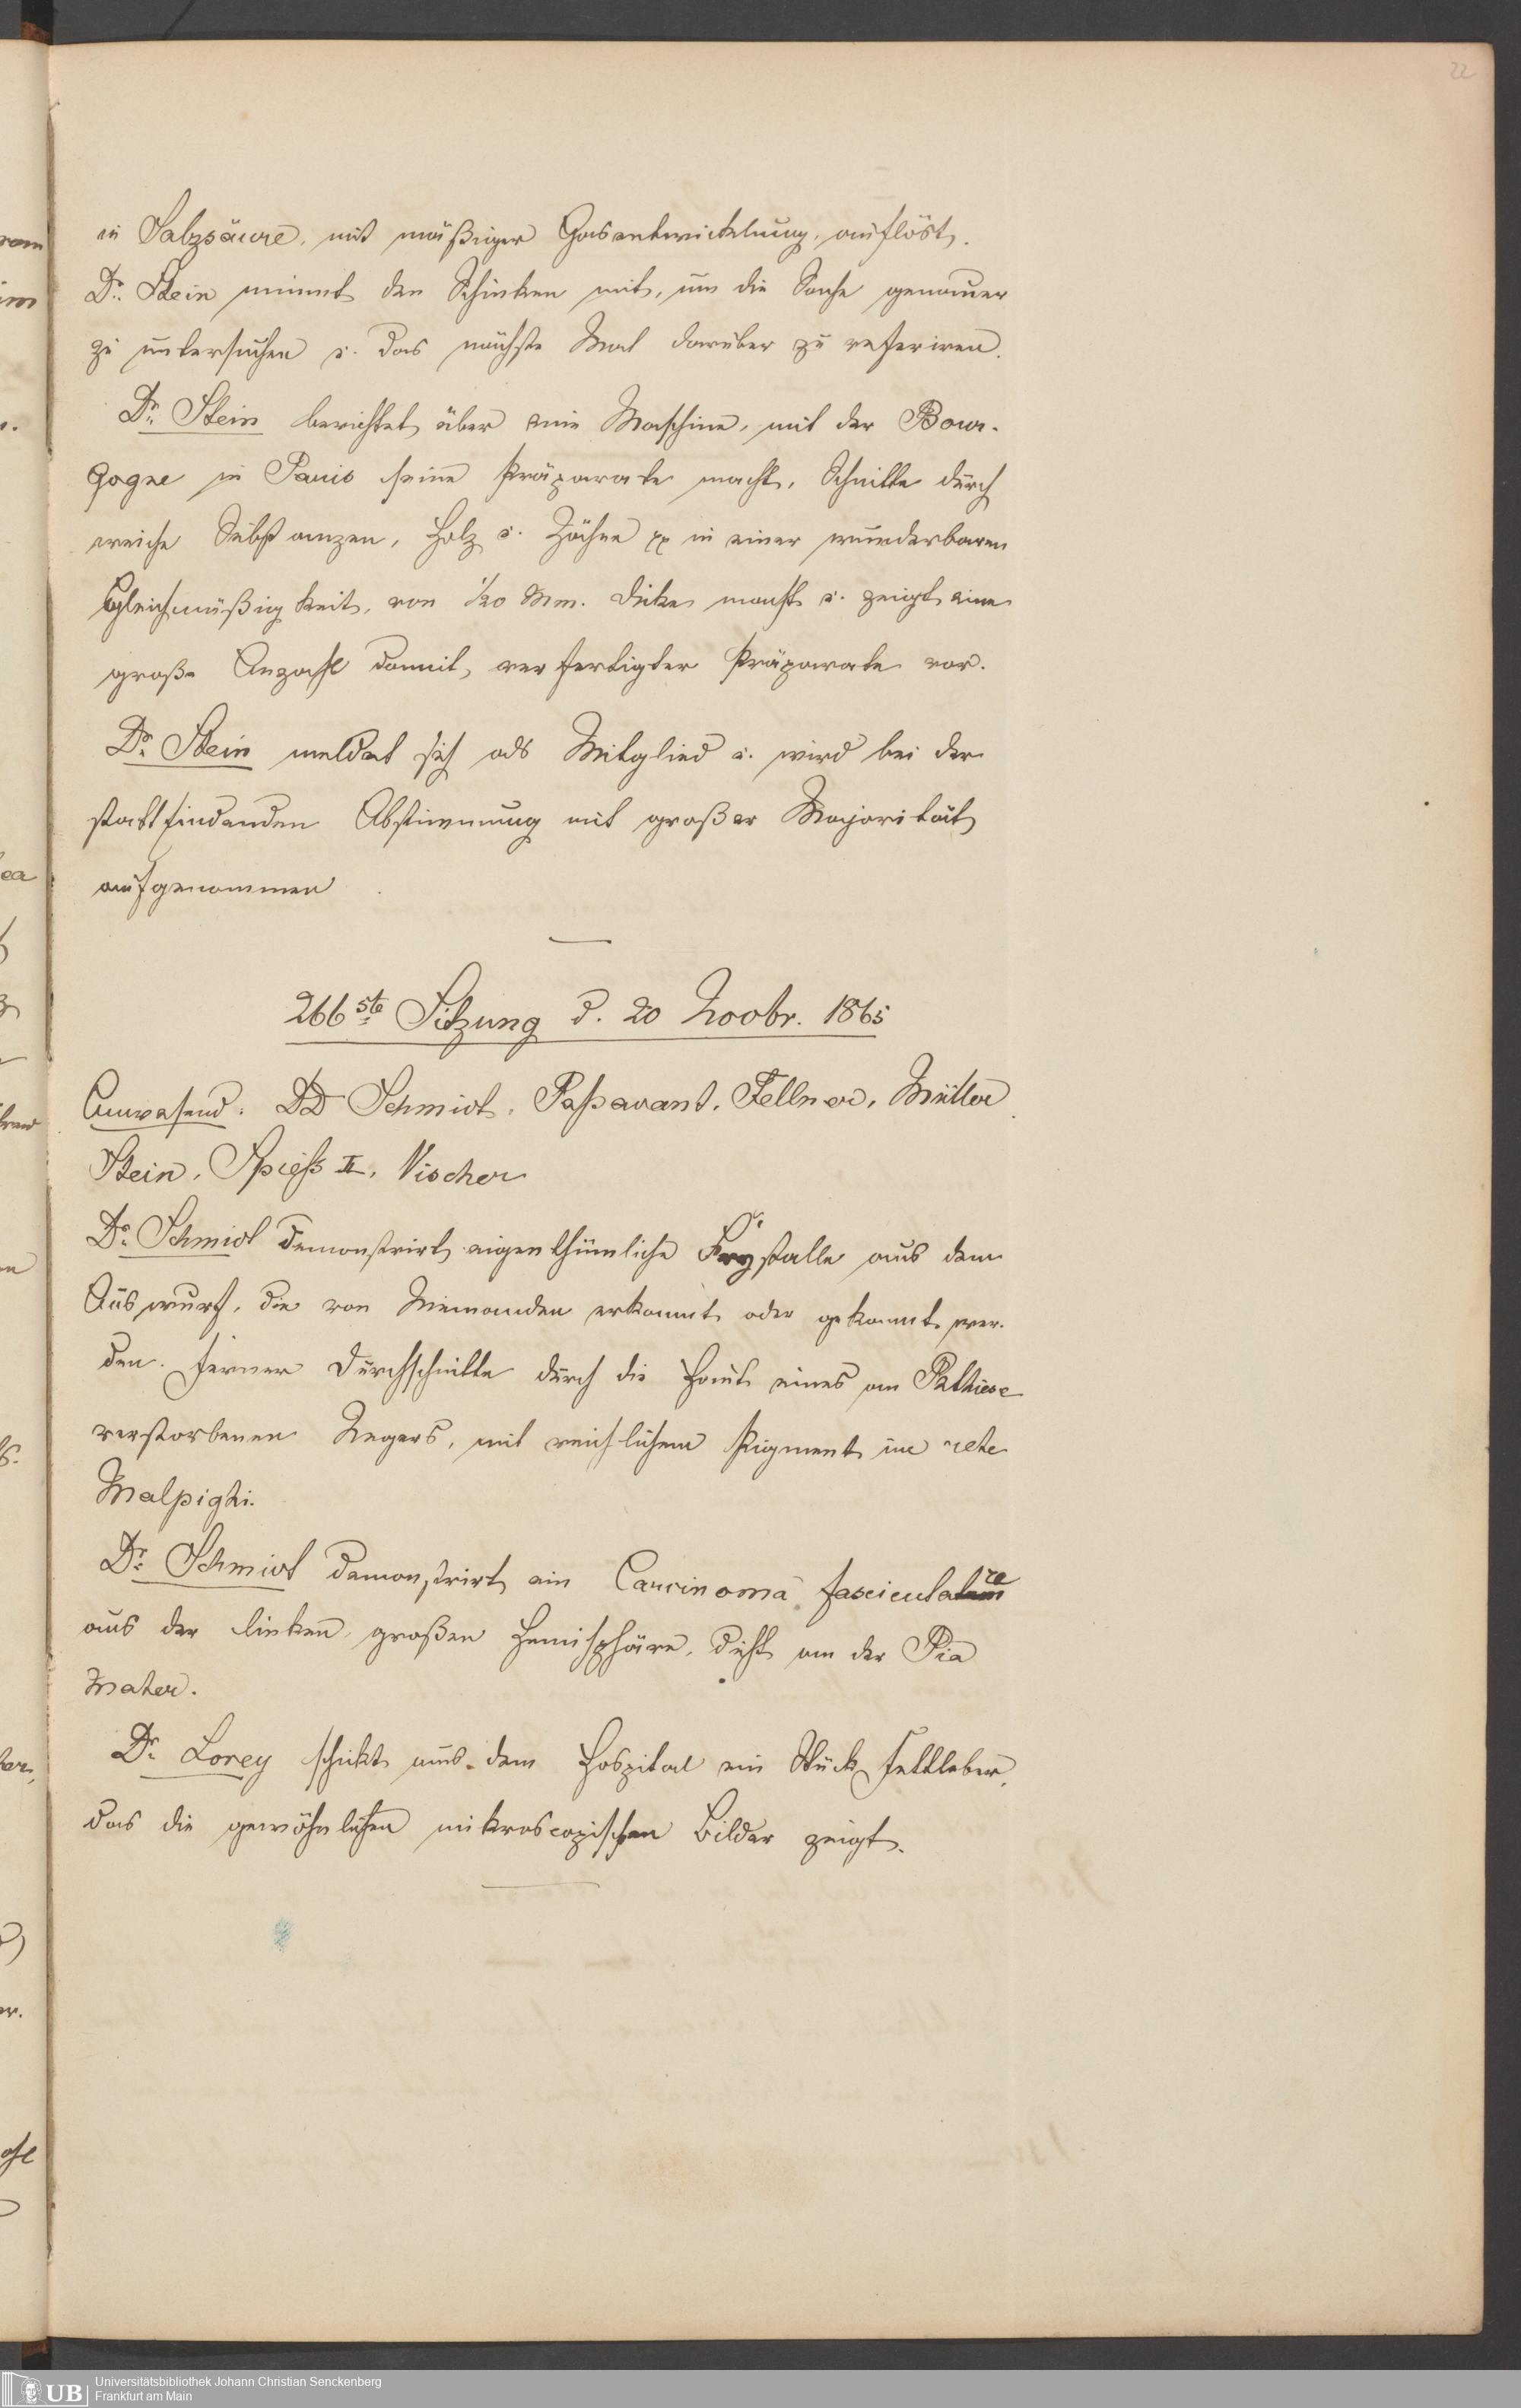 22
in Salzsäure, mit mäßiger Gasentwickelung, auflöst.
Dr. Stein nimmt den Schinken mit, um die Sache genauer
zu untersuchen u. das nächste Mal darüber zu referiren.
Dr. Stein berichtet über eine Maschine, mit der Bour-
gogne in Paris seine Präparate macht, Schnitte durch
weiche Substanzen, Holz u. Zähne pp in einer wunderbaren
Gleichmäßigkeit, von 1/20 Mm. Dicke macht u. zeigt eine
große Anzahl damit verfertigter Präparate vor.
Dr. Stein meldet sich als Mitglied u. wird bei der
stattfindenden Abstimmung mit großer Majorität
aufgenommen.
266ste Sitzung d. 20 Novbr. 1865
Anwesend: DD Schmidt, Paßavant, Fellner, Müller
Stein, Spieß II, Vischer
Dr. Schmidt demonstrirt eigenthümliche Krystalle aus dem
Auswurf, die von Niemanden erkannt oder gekannt wer-
den. Ferner Durchschnitte durch die Haut eines an Pthise
verstorbenen Negers, mit reichlichem Pigment im rete
Malpighi.
Dr. Schmidt demonstrirt ein Carcinoma fasciculare
aus der linken großen Hemisphäre, dicht an der Pia
Mater.
Dr. Lorey schickt aus dem Hospital ein Stück Fettleber,
das die gewöhnlichen mikroscopischen Bilder zeigt.
UB Universitätsbibliothek Johann Christian Senckenberg
Frankfurt am Main